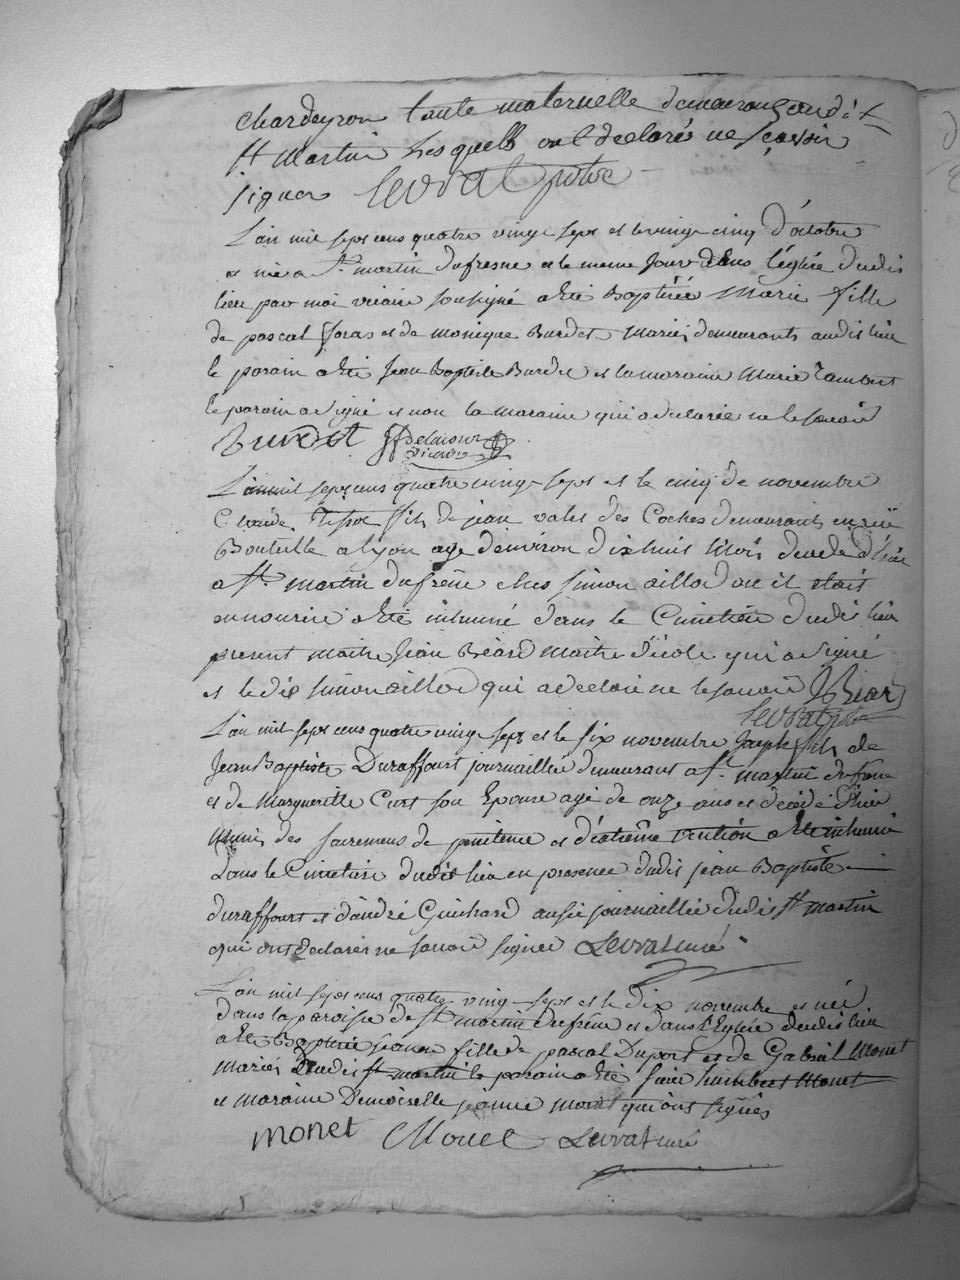 chardeyron tante maternelle demeurant audit
st martin lesquells ont declarés ne sçavoir
signer Levrat ptre
L'an mil sept cens quatre vingt sept et le vingt cinq d'octobre
est née a St martin dufresne et le meme jour dans l'église dudit
lieu par moi vicaire soussigné a été Baptisée Marie fille
de pascal foras et de monique Burdet Mariés demeurants audit lieu
le parain a été Jean Baptiste Burdet et la maraine Marie
le parain a signé et non la maraine qui a declarée ne le savoir
Burdet Delacour vicaire
L'an mil sept cens quatre vingt sept et le cinq de novembre
Claude fils de jean valet des Coches demeurant en rüe
Bouteille a lyon agé d'environ dix huit Mois decedé d'hier
a St martin dufrêne chés Simon aillod ou il etait
en nourice a été inhumé dans le Cimetière dudit lieu
present maitre Jean Béard Maitre d'école qui a signé
et le dit Simon aillod qui a declaré ne le savoir JBéard
Levrat ptre
L'an mil sept cens quatre vingt sept et le six novembre Joseph fils de
Jean Baptiste Duraffourt journaillié demeurant a St martin dufrêne
et de Marguerite Curt son Epouse agé de onze ans et décédé d'hier
Muni des sacremens de penitence et d'extrême onction a été inhumé
dans le Cimetiere dudit lieu en presence dudit jean Baptiste
duraffourt et d'andré Guichard aussi journaillié dudit st martin
qui ont declarés ne savoir signer Levrat curé
L'an mil sept cens quatre vingt sept et le dix novembre est née
dans la paroisse de St martin dufrêne et dans l'Eglise dudit lieu
a été Baptisée jeanne fille de pascal Duport et de Gabriel Monet
Mariés dudit st martin le parain a été sieur humbert Monet
et maraine Demoiselle jeanne monet qui ont signés
monet Monet Levrat curé